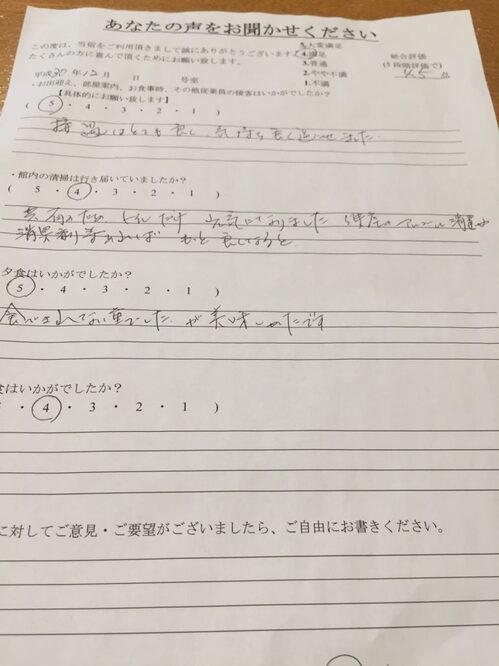 あなたの声をお聞かせください
この度は、当宿をご利用頂きまして誠にありがとうございます。
たくさんの方に喜んで頂くためにお願い致します。
5.大変満足
4.満足
3.普通
2.やや不満
1.不満
総合評価
(5段階評価で)
4.5 点
平成30年12月 日 号室
・お出迎え、部屋案内、お食事時、その他従業員の接客はいかがでしたか?
【具体的にお願い致します】
( 5 ・ 4 ・ 3 ・ 2 ・ 1 )
接遇はとても良く、気持ち良く過ごせました
・館内の清掃は行き届いていましたか?
( 5 ・ 4 ・ 3 ・ 2 ・ 1 )
トイレだけ 気になりました
消臭剤等あれば もっと良くなると
夕食はいかがでしたか?
5 ・ 4 ・ 3 ・ 2 ・ 1 )
でした が美味しかったです
食はいかがでしたか?
・ 4 ・ 3 ・ 2 ・ 1 )
に対してご意見・ご要望がございましたら、ご自由にお書きください。